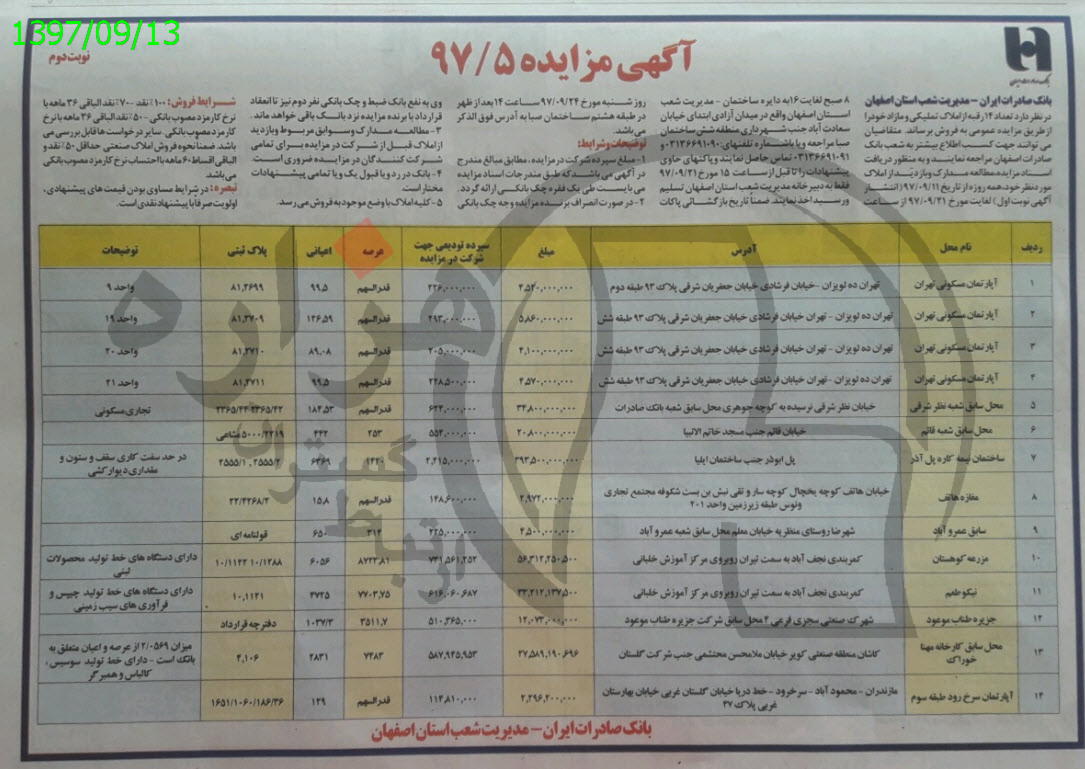 1397/09/13
آگهی مزایده ۹۷/۵
نوبت دوم
بانک صادرات ایران
بانک صادرات ایران - مدیریت شعب استان اصفهان
در نظر دارد تعداد ۱۴ رقبه از املاک تملیکی و مازاد خود را
از طریق مزایده عمومی به فروش برساند. متقاضیان
می توانند جهت کسب اطلاع بیشتر به شعب بانک
صادرات اصفهان مراجعه نمایند و به منظور دریافت
اسناد مزایده مطالعه مدارک و بازدید از املاک
مورد نظر خود، همه روزه از تاریخ ۹۷/۰۹/۱۱ (انتشار
آگهی نوبت اول) لغایت مورخ ۹۷/۰۹/۲۱ از ساعت
۸ صبح لغایت ۱۶ به دایره ساختمان - مدیریت شعب
استان اصفهان واقع در میدان آزادی ابتدای خیابان
سعادت آباد جنب شهرداری منطقه شش ساختمان
صبا مراجعه و یا شماره تلفنهای: ۰۳۱۳۶۶۹۱۰۹۰ و
۰۳۱۳۶۶۹۱۰۹۱ تماس حاصل نمایند و پاکتهای حاوی
پیشنهادات را تا قبل از ساعت ۱۵ مورخ ۹۷/۰۹/۲۱
فقط به دبیرخانه مدیریت شعب استان اصفهان تسلیم
و رسید اخذ نمایند. ضمناً تاریخ بازگشائی پاکات
روز شنبه مورخ ۹۷/۰۹/۲۴ ساعت ۱۴ بعد از ظهر
در طبقه هشتم ساختمان صبا به آدرس فوق الذکر
می باشد.
توضیحات و شرایط:
۱- مبلغ سپرده شرکت در مزایده، مطابق مبالغ مندرج
در آگهی می باشد که طبق مندرجات اسناد مزایده
می بایست طی یک فقره چک بانکی ارائه گردد.
۲- در صورت انصراف برنده مزایده وجه چک بانکی
وی به نفع بانک ضبط و چک بانکی نفر دوم نیز تا انعقاد
قرارداد با برنده مزایده نزد بانک باقی خواهد ماند.
۳- مطالعه مدارک و سوابق مربوط و بازدید
از املاک قبل از شرکت در مزایده برای تمامی
شرکت کنندگان در مزایده ضروری است.
۴- بانک در رد و یا قبول یک و یا تمامی پیشنهادات
مختار است.
۵- کلیه املاک با وضع موجود به فروش می رسد.
شرایط فروش: ۱۰۰٪ نقد - ۷۰٪ نقد الباقی ۳۶ ماهه با
نرخ کارمزد مصوب بانکی - ۵۰٪ نقد الباقی ۳۶ ماهه با نرخ
کارمزد مصوب بانکی. سایر درخواست ها قابل بررسی می
باشد. ضمناً نحوه فروش املاک صنعتی حداقل ۵۰٪ نقد و
الباقی اقساط ۶۰ ماهه با احتساب نرخ کارمزد مصوب بانکی
می باشد
تبصره: در شرایط مساوی بودن قیمت های پیشنهادی،
اولویت صرفاً با پیشنهاد نقدی است.
ردیف نام محل آدرس مبلغ سپرده تودیعی جهت شرکت در مزایده عرصه اعیانی پلاک ثبتی توضیحات
۱ آپارتمان مسکونی تهران تهران ده لویزان - خیابان فرشادی خیابان جعفریان شرقی پلاک ۹۳ طبقه دوم ۴,۵۲۰,۰۰۰,۰۰۰ ۲۲۶,۰۰۰,۰۰۰ قدرالسهم ۹۹.۵ ۸۱,۲۶۹۹ واحد ۹
۲ آپارتمان مسکونی تهران تهران ده لویزان - تهران خیابان فرشادی خیابان جعفریان شرقی پلاک ۹۳ طبقه شش ۵,۸۶۰,۰۰۰,۰۰۰ ۲۹۳,۰۰۰,۰۰۰ قدرالسهم ۱۲۶,۵۹ ۸۱,۲۷۰۹ واحد ۱۹
۳ آپارتمان مسکونی تهران تهران ده لویزان - تهران خیابان فرشادی خیابان جعفریان شرقی پلاک ۹۳ طبقه شش ۴,۱۰۰,۰۰۰,۰۰۰ ۲۰۵,۰۰۰,۰۰۰ قدرالسهم ۸۹.۰۸ ۸۱,۲۷۱۰ واحد ۲۰
۴ آپارتمان مسکونی تهران تهران ده لویزان - تهران خیابان فرشادی خیابان جعفریان شرقی پلاک ۹۳ طبقه شش ۴,۵۷۰,۰۰۰,۰۰۰ ۲۲۸,۵۰۰,۰۰۰ قدرالسهم ۹۹.۵ ۸۱,۲۷۱۱ واحد ۲۱
۵ محل سابق شعبه نظر شرقی خیابان نظر شرقی نرسیده به کوچه جوهری محل سابق شعبه بانک صادرات ۳۴,۸۰۰,۰۰۰,۰۰۰ قدرالسهم ۱۸۴,۵۳ تجاری مسکونی
۶ محل سابق شعبه قائم خیابان قائم جنب مسجد خاتم الانبیا ۲۰,۸۰۰,۰۰۰,۰۰۰ ۲۵۳ ۴۴۲ ۵۰۰۰/۲۲۱۹ مشاعی
۷ ساختمان نیمه کاره پل آذر پل ابوذر جنب ساختمان ایلیا ۳۹۳,۵۰۰,۰۰۰,۰۰۰ ۶۳۶۹ ۲۵۵۵/۲ , ۲۵۵۵/۱ در حد سفت کاری سقف و ستون و مقداری دیوارکشی
۸ مغازه هاتف خیابان هاتف کوچه یخچال کوچه سارو تقی نبش بن بست شکوفه مجتمع تجاری ونوس طبقه زیرزمین واحد ۲۰۱ ۲,۹۷۲,۰۰۰,۰۰۰ ۱۴۸,۶۰۰,۰۰۰ قدرالسهم ۱۵,۸ ۲۲/۴۲۶۸/۲
۹ سابق عمرو آباد شهرضا روستای منظریه خیابان معلم محل سابق شعبه عمرو آباد ۴,۵۰۰,۰۰۰,۰۰۰ ۲۲۵,۰۰۰,۰۰۰ ۳۱۴ ۶۵۰ قولنامه ای
۱۰ مزرعه کوهستان کمربندی نجف آباد به سمت تیران روبروی مرکز آموزش خلبانی ۵۶,۳۱۲,۲۵۰,۵۰۰ ۷۴۱,۵۶۱,۲۵۲ ۸۷۲۲,۸۱ ۶۰۵۶ ۱۰/۱۲۸۸ ۱۰/۱۱۴۲ دارای دستگاه های خط تولید محصولات لبنی
۱۱ نیکو طعم کمربندی نجف آباد به سمت تیران روبروی مرکز آموزش خلبانی ۳۳,۲۱۲,۱۳۷,۵۰۰ ۶۱۶,۰۶۰,۶۸۷ ۷۷۰۳,۷۵ ۴۷۲۵ ۱۰,۱۱۲۱ دارای دستگاه های خط تولید چیپس و فرآوری های سیب زمینی
۱۲ جزیره طناب موعود شهرک صنعتی سجزی فرعی ۴ محل سابق شرکت جزیره طناب موعود ۱۲,۰۷۳,۰۰۰,۰۰۰ ۵۱۰,۳۶۵,۰۰۰ ۳۵۱۱,۷ ۱۰۳۷/۳ دفترچه قرارداد
۱۳ محل سابق کارخانه مهنا خوراک کاشان منطقه صنعتی کویر خیابان ملامحسن محتشمی جنب شرکت گلستان ۲۷,۵۸۹,۱۹۰,۶۹۶ ۵۸۷,۹۴۵,۹۵۳ ۷۴۸۳ ۲۸۳۱ ۴,۱۰۶ میزان ۲/۰۵۶۹ از عرصه و اعیان متعلق به بانک است - دارای خط تولید سوسیس، کالباس و همبرگر
۱۴ آپارتمان سرخ رود طبقه سوم مازندران - محمود آباد - سرخرود - خط دریا خیابان گلستان غربی خیابان بهارستان غربی پلاک ۲۷ ۲,۲۹۶,۲۰۰,۰۰۰ ۱۱۴,۸۱۰,۰۰۰ قدرالسهم ۱۲۹ ۱۶۵۱/۱۰۶۰/۱۸۶/۳۶
بانک صادرات ایران - مدیریت شعب استان اصفهان
هزاره
گستران
ارتباط